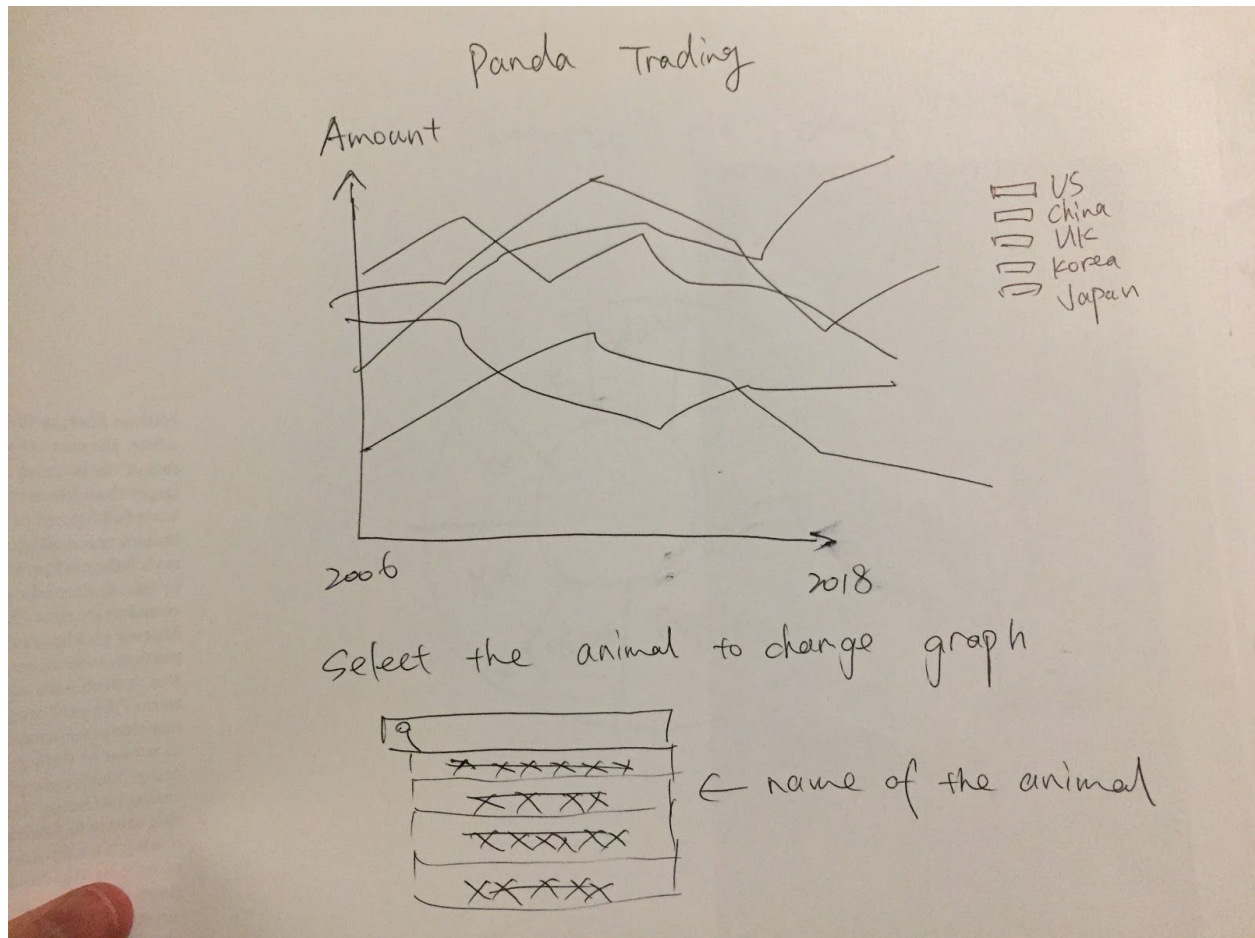 Panda Trading
Amount
US
China
UK
Korea
Japan
2006 2018
Select the animal to change graph
x xxxxx
xx xx
xxxxxx
xx xxx
← name of the animal